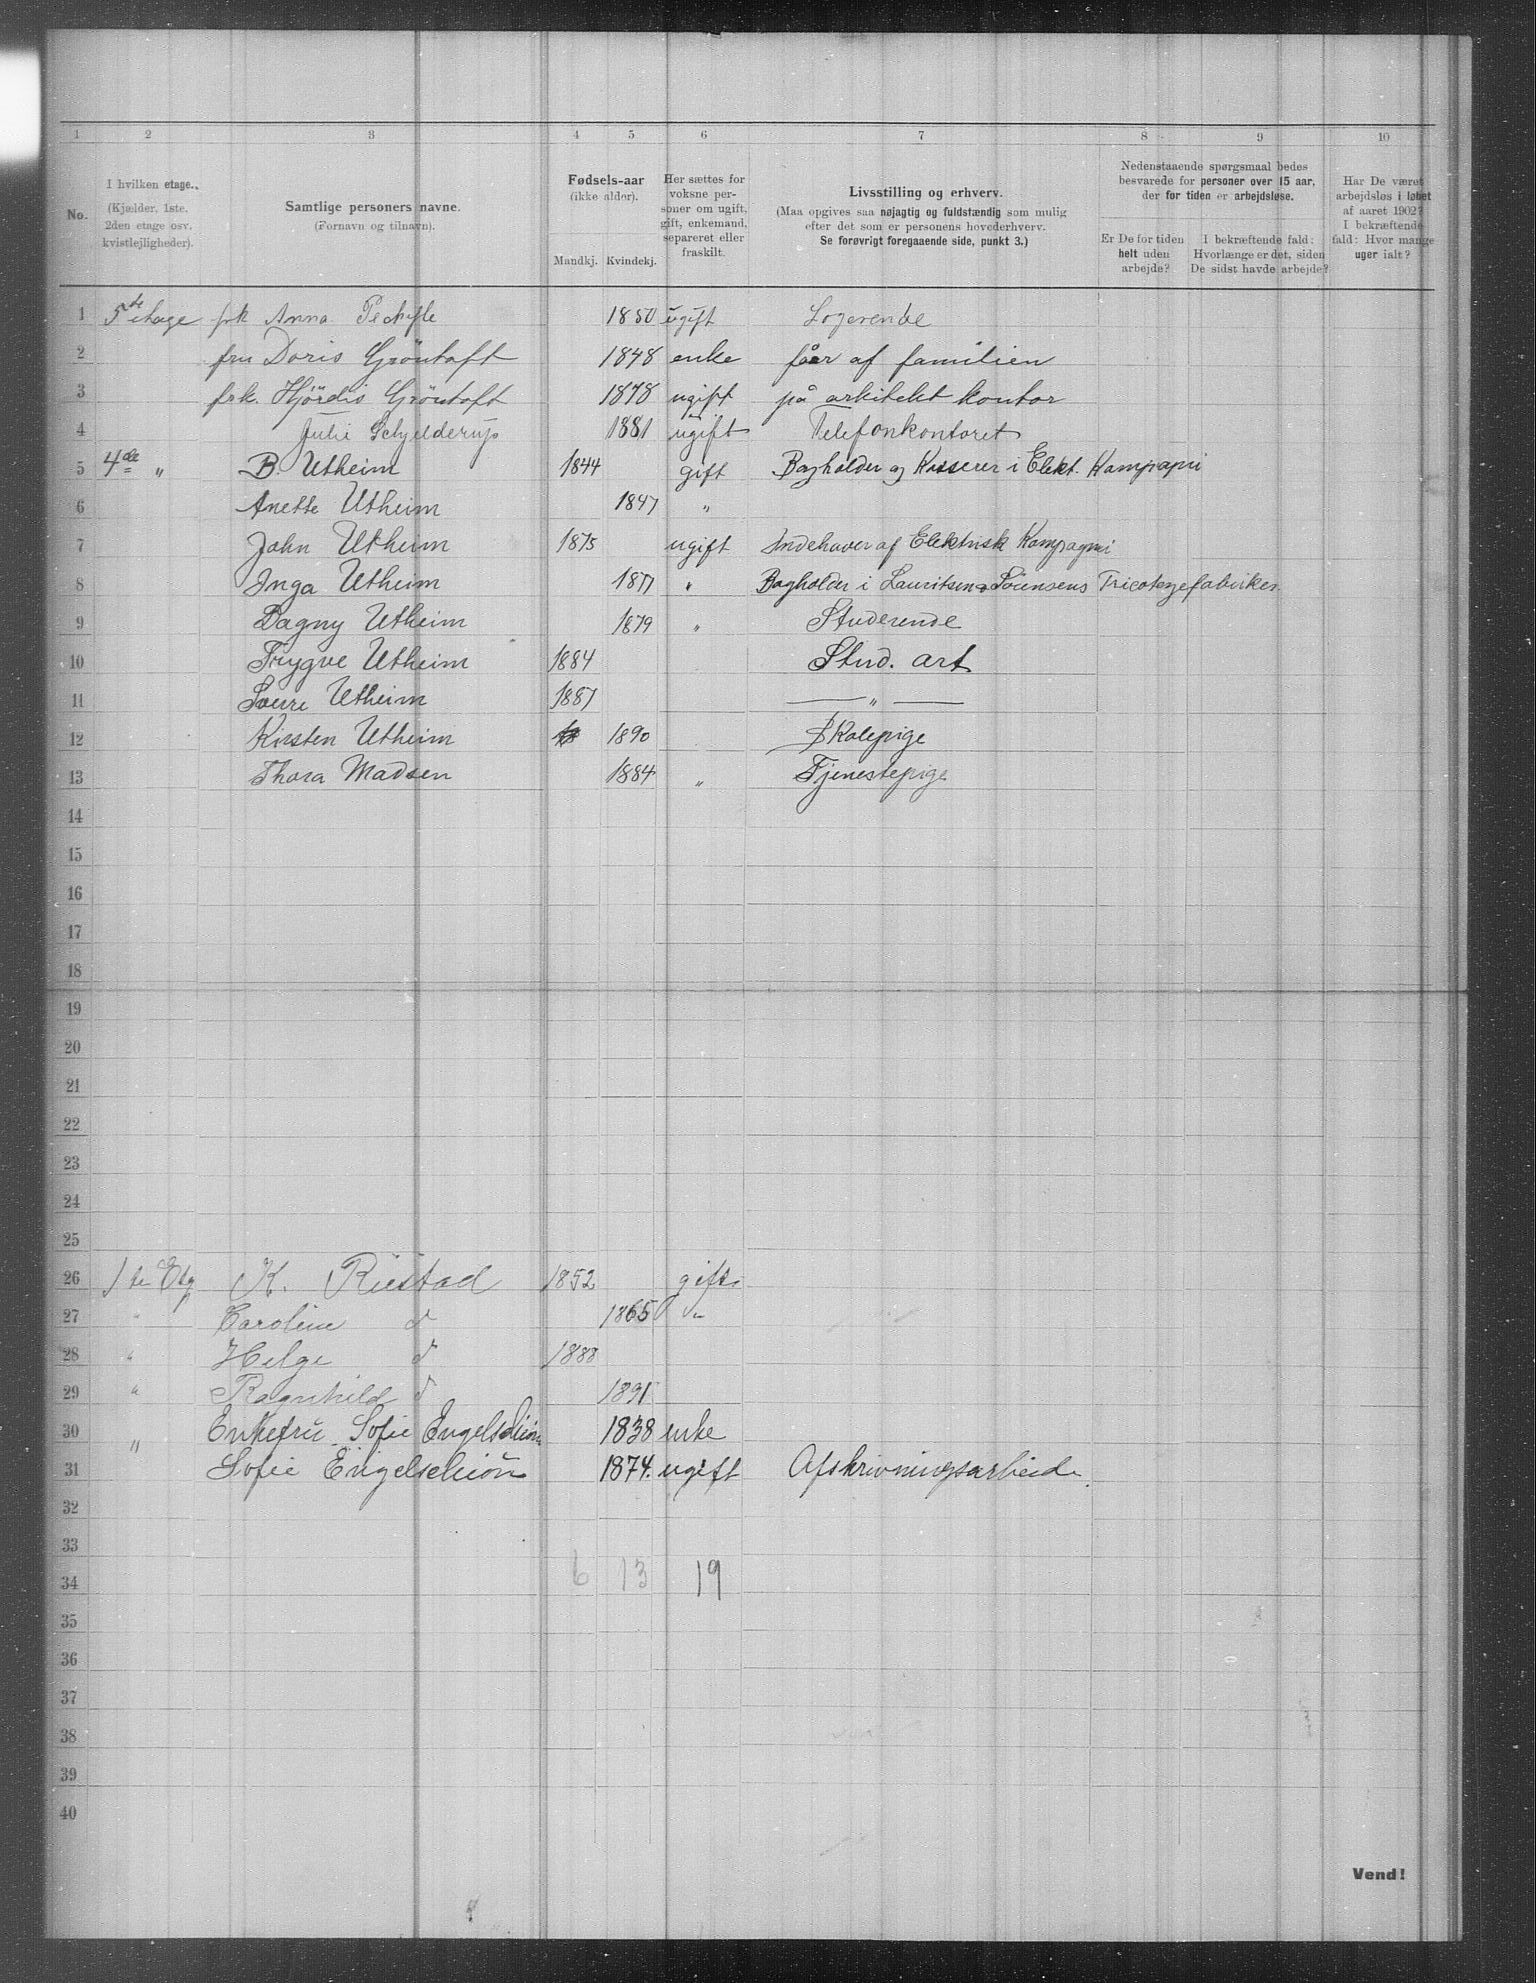 1 2 3 4 5 6 7 8 9 10
No.
I hvilken etage.
(Kjælder, 1ste.
2den etage osv.
kvistlejligheder).
Samtlige personers navne.
(Fornavn og tilnavn).
Fødsels-aar
(ikke alder).
Mandkj. Kvindekj.
Her sættes for
voksne per-
soner om ugift,
gift, enkemand,
separeret eller
fraskilt.
Livsstilling og erhverv.
(Maa opgives saa nøjagtig og fuldstændig som mulig
efter det som er personens hovederhverv.
Se forøvrigt foregaaende side, punkt 3.)
Nedenstaaende spørgsmaal bedes
besvarede for personer over 15 aar,
der for tiden er arbejdsløse.
Er De for tiden
helt uden
arbejde?
I bekræftende fald:
Hvorlænge er det, siden
De sidst havde arbejde?
Har De været
arbejdsløs i løbet
af aaret 1902?
I bekræftende
fald: Hvor mange
uger ialt?
1 5te etage frk Anna 1850 ugift Logerende
2 fru Doris Gröntoft 1848 enke får af familien
3 frk. Hjördis Gröntoft 1878 ugift på arkitekt kontor
4 Julie Schjelderup 1881 ugift Telefonkontoret
5 4de " B. Utheim 1844 gift Bogholder og Kasserer i Elekt. Kompagni
6 Anette Utheim 1847 "
7 John Utheim 1875 ugift Indehaver af Elektrisk Kompagni
8 Inga Utheim 1877 " Bogholder i Lauritsen & Sörensens Tricotagefabriker
9 Dagny Utheim 1879 " Studerende
10 Trygve Utheim 1884 Stud. art
11 Sverre Utheim 1887 — " —
12 Kirsten Utheim 1890 Skolepige
13 Thora Madsen 1884 " Tjenestepige
14
15
16
17
18
19
20
21
22
23
24
25
26 1ste Etg K. Riestad 1852 gift
27 " Caroline d 1865 "
28 " Helge d 1888
29 " Ragnhild d 1891
30 " Enkefru Sofie Engelschiön 1838 enke
31 Sofie Engelschiön 1874. ugift Afskrivningsarbeide.
32
33
34 6 13 19
35
36
37
38
39
40
Vend!